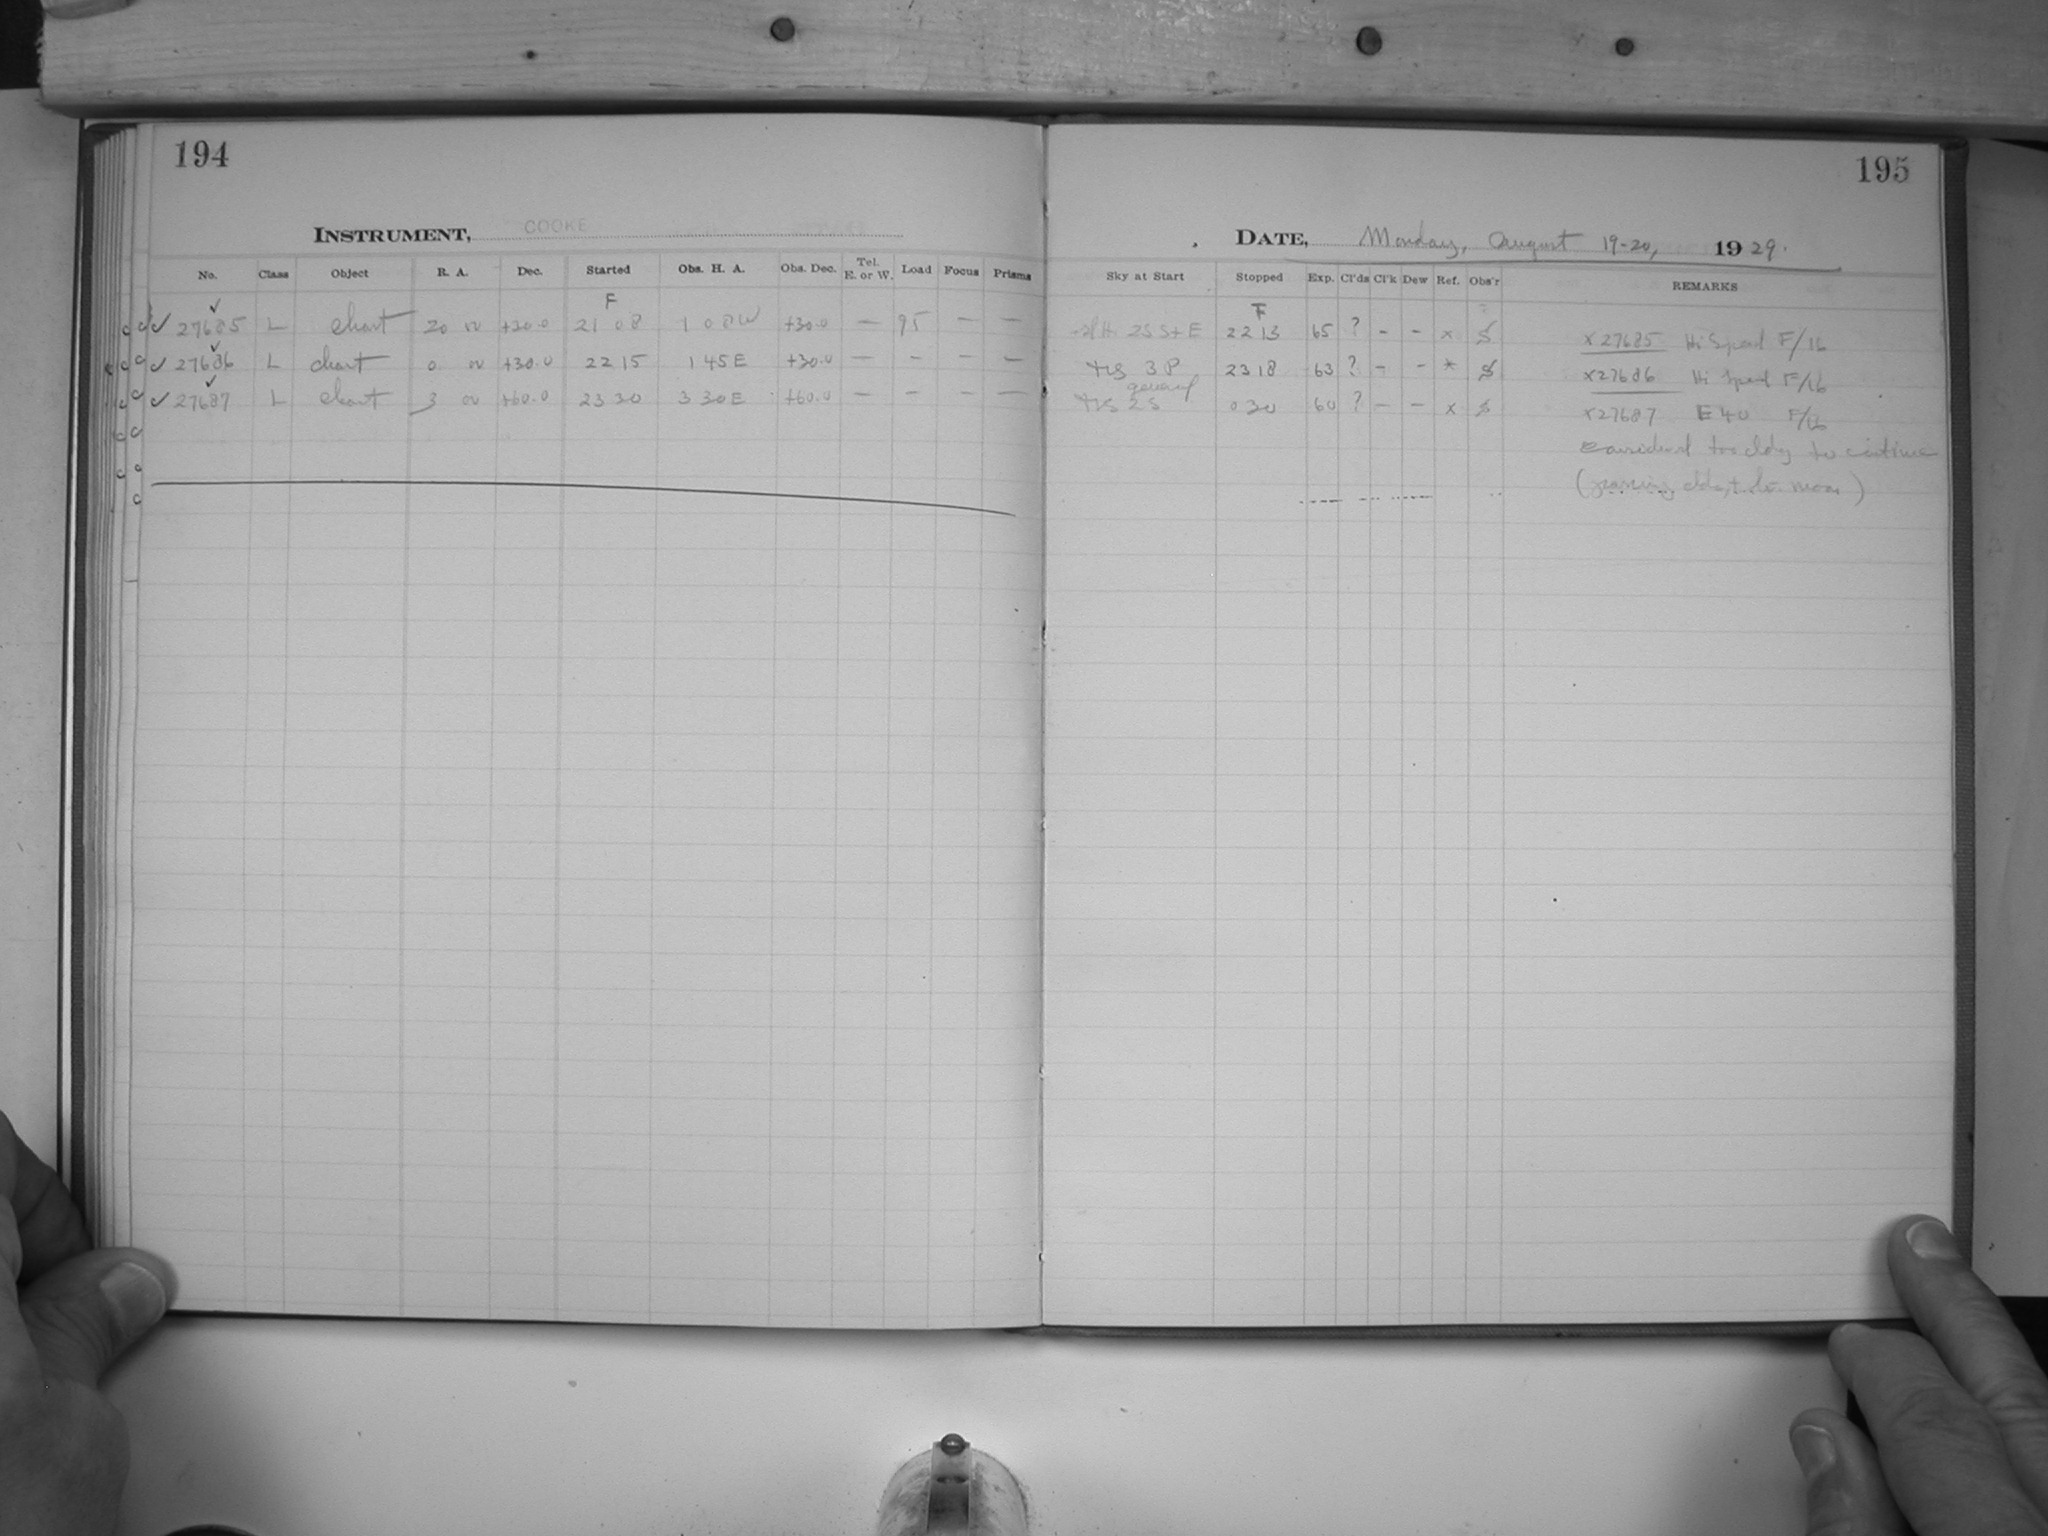 194
195
INSTRUMENT, COOKE
DATE, Monday, August 19-20, 1929.
No. Class Object R. A. Dec. Started Obs. H. A. Obs. Dec. Tel. E. or W. Load Focus Prisms
Sky at Start Stopped Exp. Cl'ds Cl'k Dew Ref. Obs'r REMARKS
F F
27685 L chart 20 00 +30.0 21 08 1 08 W +30.0 — 95 — —
2S S+E 22 13 65 ? – – x S x27685 Hi Speed F/16
27686 L chart 0 00 +30.0 22 15 1 45 E +30.0 — – – –
3 P 23 18 63 ? – – * S x27686 Hi Speed F/16
general
27687 L chart 3 00 +60.0 23 30 3 30 E +60.0 — – – —
2S 0 30 60 ? – – x S x27687 E 40 F/16
considered too cldy to continue
( clds, + moon)